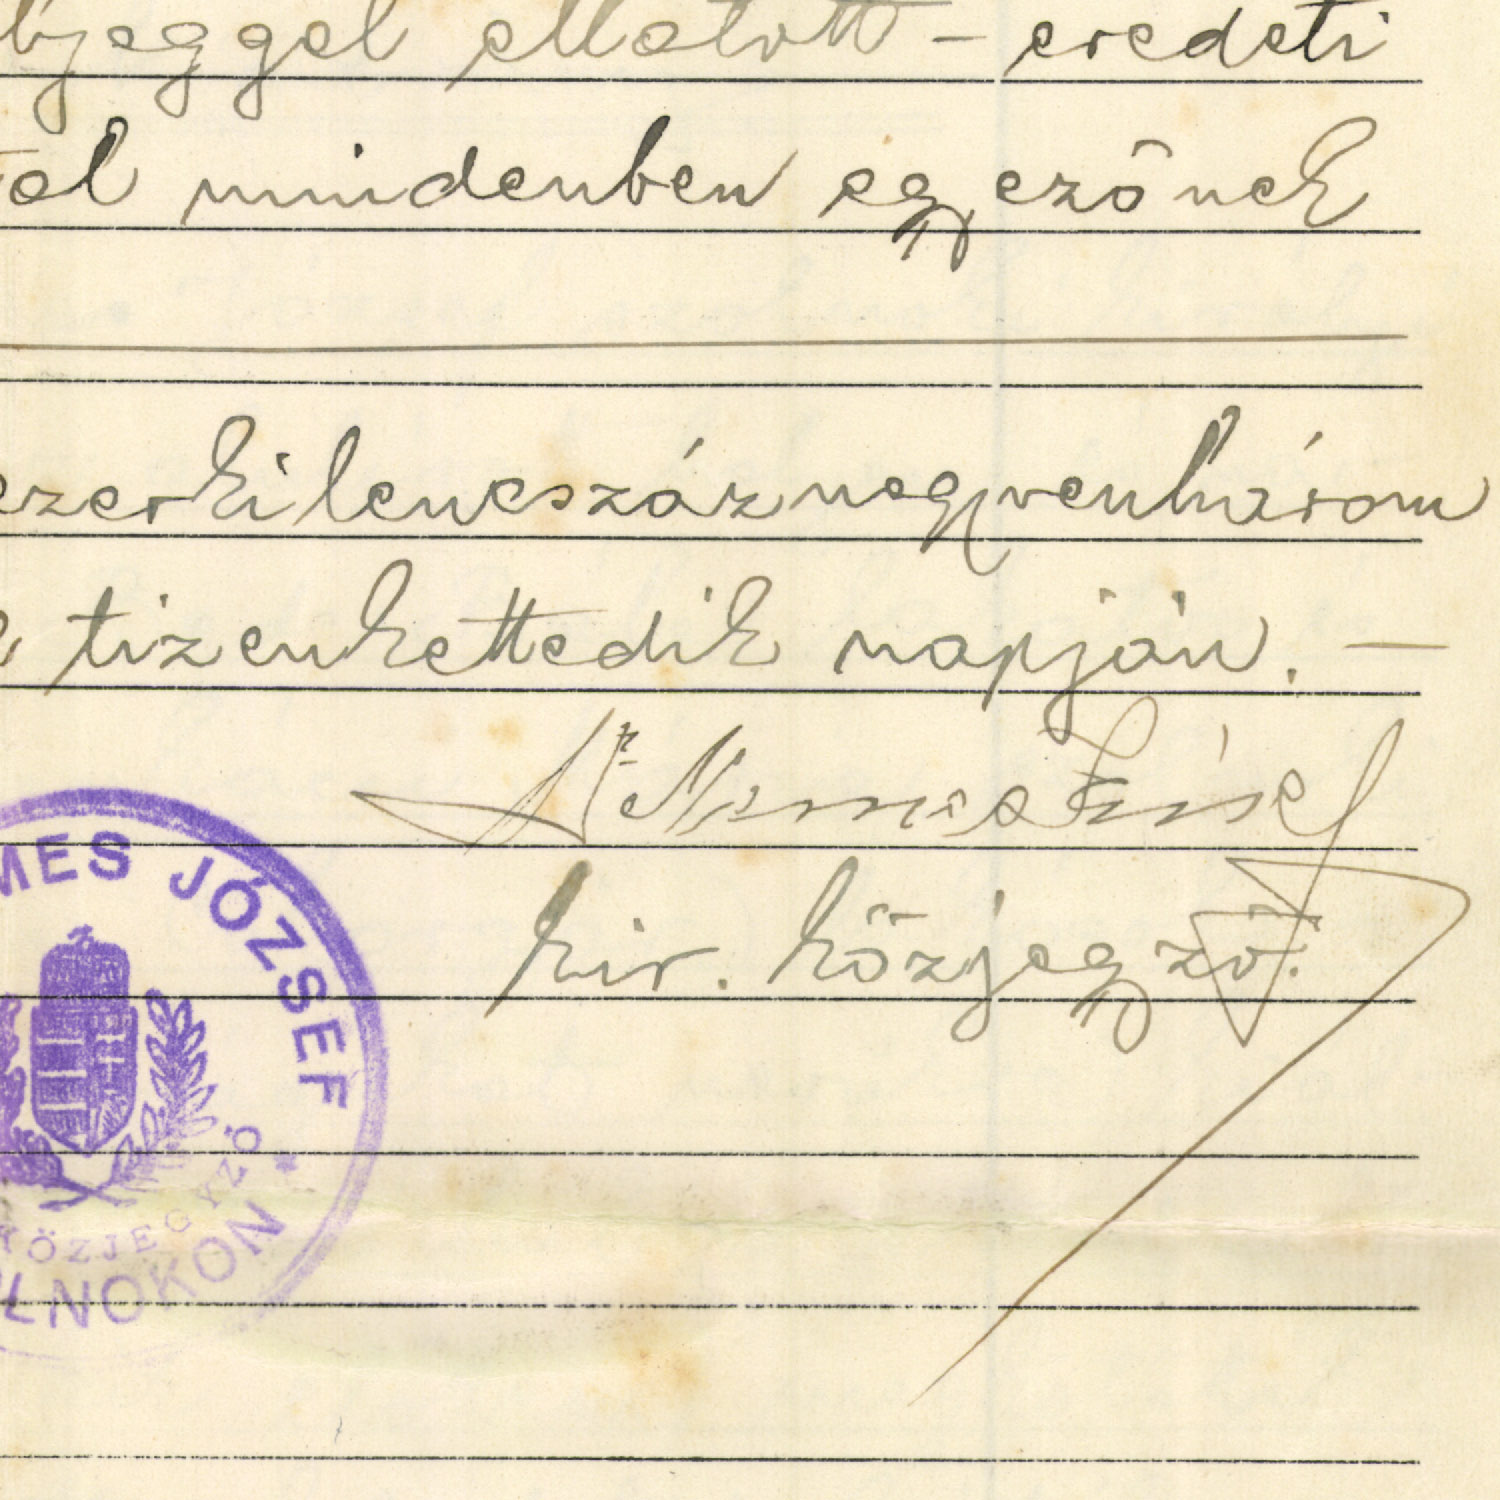 bjeggel ellátott – eredeti
al mindenben egyezőnek
ezerkilencszáznegyvenhárom
tizenkettedik napján. —
Dr Nemes József
kir. közjegyző.
MES JÓZSEF
KÖZJEGYZŐ *
LNOKON